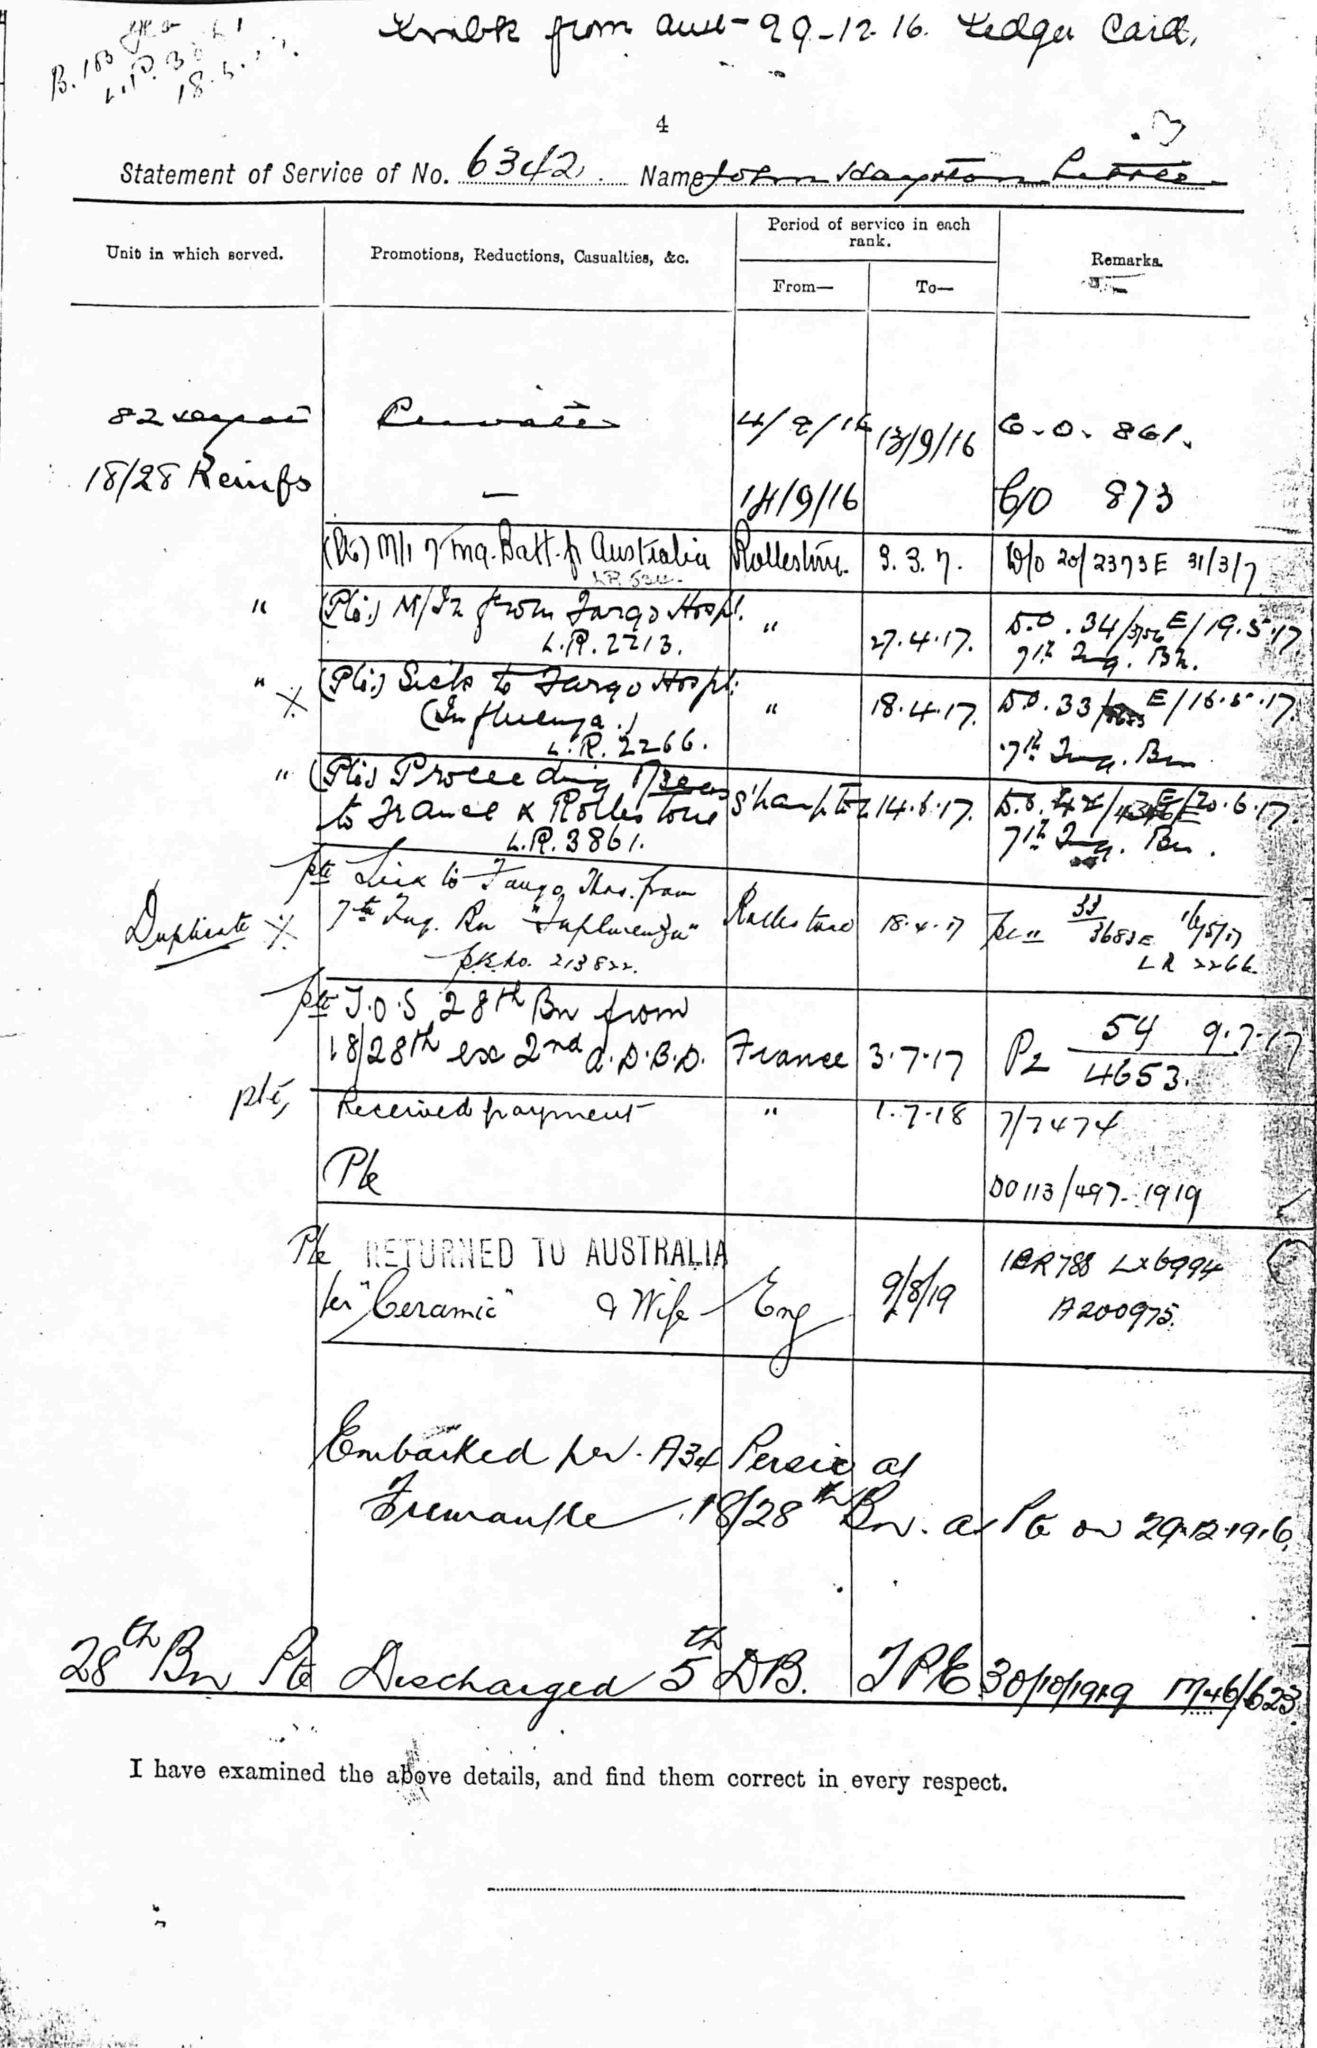 from Aust- 29-12-16. Ledger Card.
B. 103
18.5.
4
Statement of Service of No. 6342. Name John
Unit in which served.
Promotions, Reductions, Casualties, &c.
Period of service in each rank.
From—
To—
Remarks.
82 Private 13/9/16 C.O. 861.
18/28 Reinfs — 14/9/16 C/O 873
M/I 7 Tng. Batt. fr Australia Rollestone. 3/7
" (Pte) M/In from Fargo Hospl. " 27.4.17. D.O. 34/ E/19.5.17
L.R. 2213. 7th Tng. Bn.
" (Pte) Sick to Fargo Hospl. " 18.4.17. D.O. 33/ E/16.5.17.
(Influenza.) 7th Tng. Bn
L.R. 2266.
" (Pte) Proceeding O/seas S'hampton 14.6.17. 20.6.17.
to France ex Rollestone 7th Tng. Bn.
L.R. 3861.
Pte Sick to Fargo Hos. from
Duplicate 7th Tng. Bn "Influenza" Rollestone 18.4.17 33/3683E 16/5/17
213822. LR 2266
Pte T.O.S 28th Bn from
18/28th ex 2nd A.D.B.D. France 3.7.17 P2 54/4653. 9.7.17
pte, Received payment " 1.7.18 7/7474
Pte DO 113/497- 1919
Pte RETURNED TO AUSTRALIA
per "Ceramic" & Wife Eng 9/8/19 A200975.
Embarked per. A34 Persic at
Fremantle 18/28th Bn. as Pte on 29.12.1916.
28th Bn Pte Discharged 5th DB. TPE 30/10/1919 M46/623.
I have examined the above details, and find them correct in every respect.